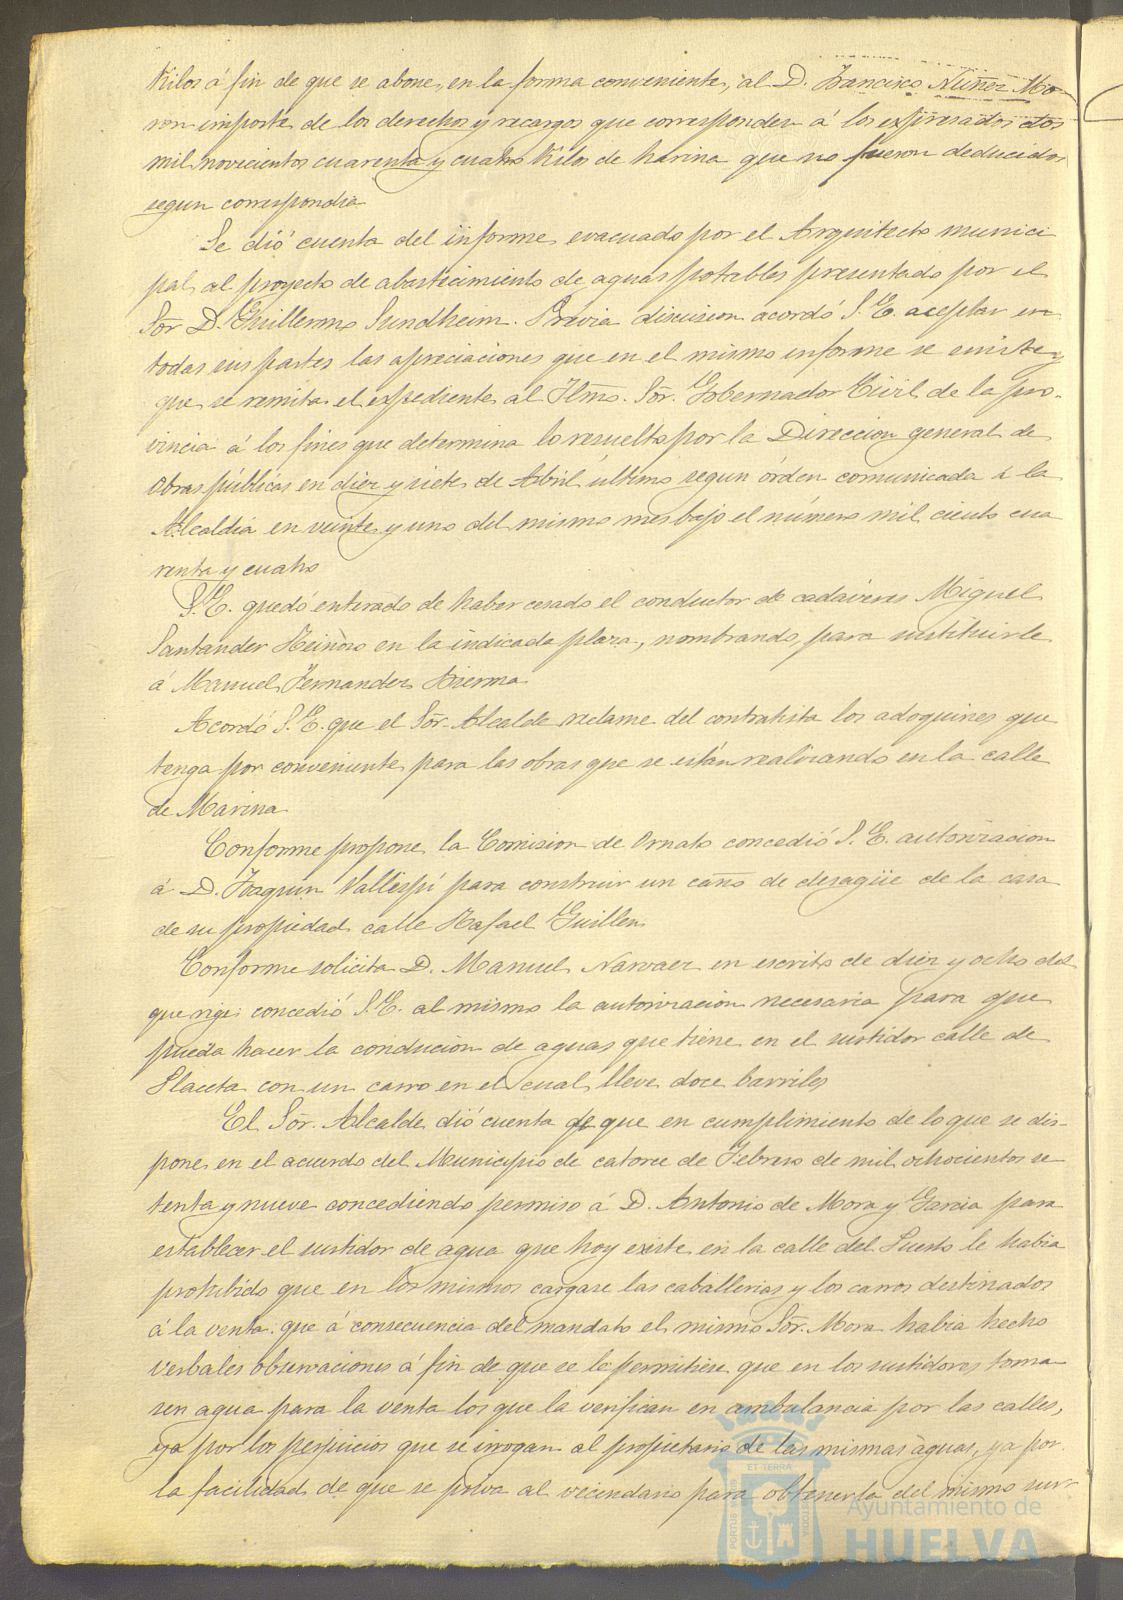 Kilos á fin de que se abone, en la forma conveniente, al D. Francisco Nuñez Mo-
ron importe de los derechos y recargos que corresponden á los expresados dos
mil novecientos cuarenta y cuatro Kilos de harina que no fueron deducidos
segun correspondia
Se dió cuenta del informe evacuado por el Arquitecto munici
pal al proyecto de abastecimiento de aguas potables presentado por el
Sõr D. Guillermo Sundheim. Prévia discusion acordó S. E. aceptar en
todas sus partes las apreciaciones que en el mismo informe se emite y
que se remita el expediente al Iltmo. Sõr. Gobernador Civil de la pro-
vincia á los fines que determina lo resuelto por la Direccion general de
Obras públicas en diez y siete de Abril último segun órden comunicada á la
Alcaldia en veinte y uno del mismo mes bajo el número mil ciento cua
renta y cuatro
S. E. quedó enterado de haber cesado el conductor de cadáveres Miguel
Santander in en la indicada plaza, nombrando, para sustituirle
á Manuel Fernandez
Acordó S. E. que el Sõr. Alcalde reclame del contratista los adoquines que
tenga por conveniente para las obras que se están realizando en la calle
de Marina
Conforme propone la Comision de Ornato concedió S. E. autorizacion
á D. Joaquin Vallespí para construir un caño de desagüe de la casa
de su propiedad calle Rafael Guillen
Conforme solicita D. Manuel Narvaez en escrito de diez y ocho del
que rige concedió S. E. al mismo la autorizacion necesaria para que
pueda hacer la conducion de aguas que tiene en el surtidor calle de
Placeta con un carro en el cual lleve doce barriles
El Sõr. Alcalde dió cuenta de que en cumplimiento de lo que se dis-
pone en el acuerdo del Municipio de catorce de Febrero de mil ochocientos se
tenta y nueve concediendo permiso á D. Antonio de Mora y Garcia para
establecer el surtidor de agua que hoy existe en la calle del Puerto le habia
prohibido que en los mismos cargase las caballerias y los carros destinados
á la venta. que á consecuencia del mandato el mismo Sõr. Mora habia hecho
verbales observaciones á fin de que se le permitiese que en los surtidores toma
sen agua para la venta los que la verifican en ambulancia por las calles,
ya por los perjuicios que se irrogan al propietario de las mismas aguas, ya por
la facilidad de que se priva al vecindario para obtenerla del mismo sur-
ET TERRA
PORTUS MARIS
CUSTODIA
Ayuntamiento de
HUELVA